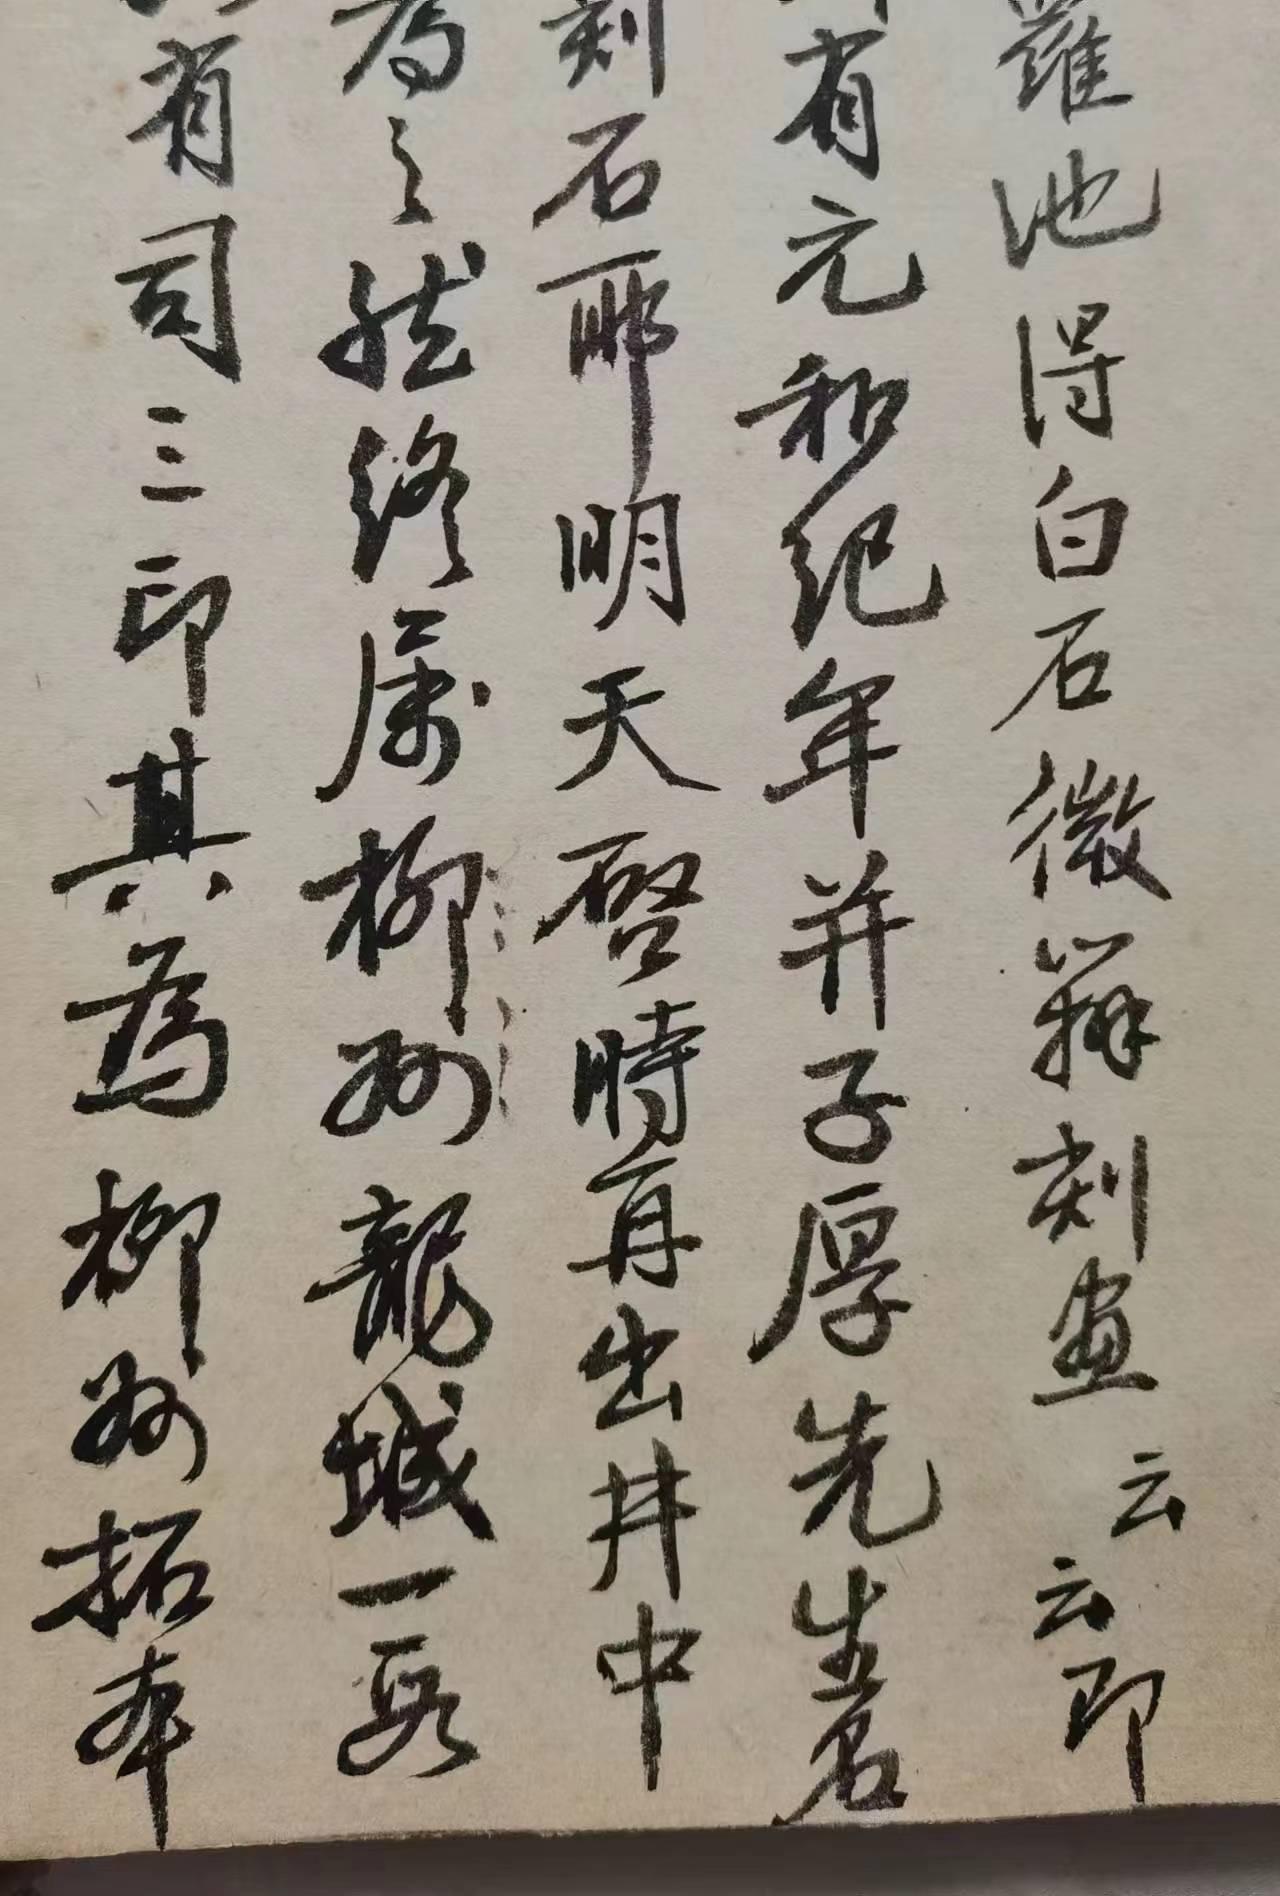 羅池得白石微辨刻畫云云即
有元和紀年并子厚先生名
刻石耶明天啓時再出井中
為之然終屬柳州龍城一段
有司三印其為柳州拓本